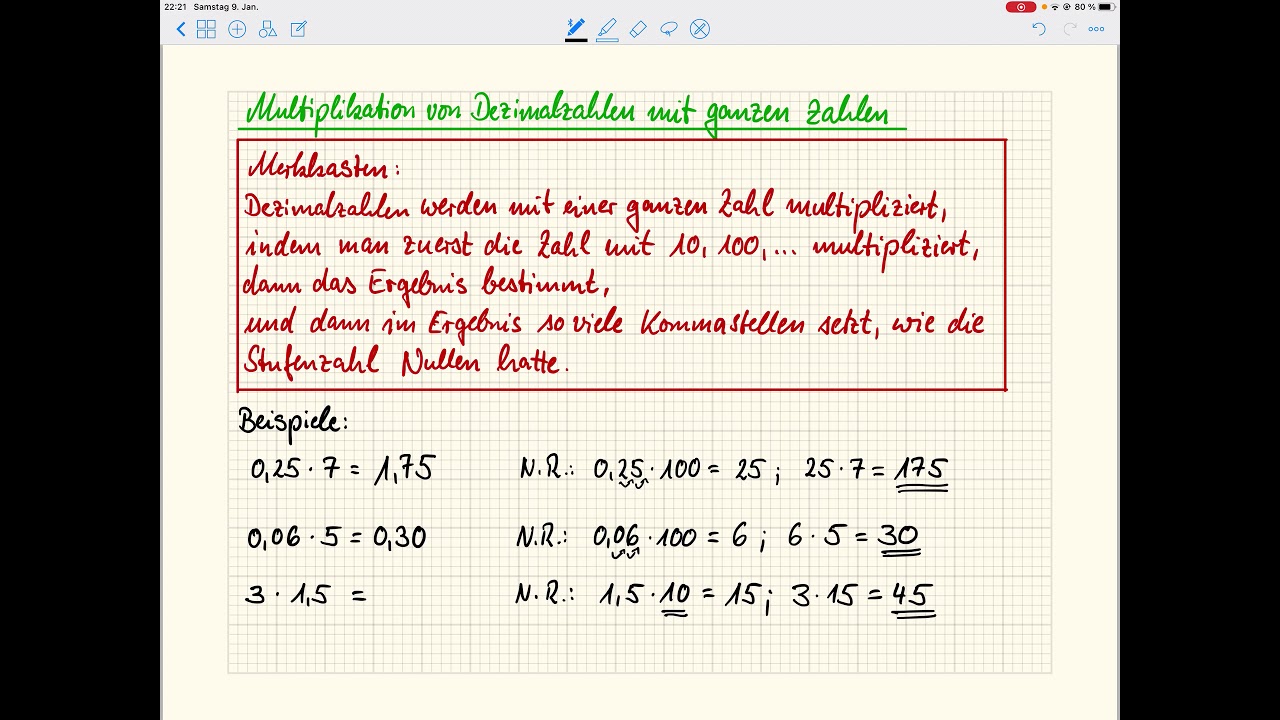 22:21 Samstag 9. Jan. 80 %
Multiplikation von Dezimalzahlen mit ganzen Zahlen
Merkkasten:
Dezimalzahlen werden mit einer ganzen Zahl multipliziert,
indem man zuerst die Zahl mit 10, 100, ... multipliziert,
dann das Ergebnis bestimmt,
und dann im Ergebnis so viele Kommastellen setzt, wie die
Stufenzahl Nullen hatte.
Beispiele:
0,25 · 7 = 1,75 N.R.: 0,25 · 100 = 25 ; 25 · 7 = 175
0,06 · 5 = 0,30 N.R.: 0,06 · 100 = 6 ; 6 · 5 = 30
3 · 1,5 = N.R.: 1,5 · 10 = 15 ; 3 · 15 = 45